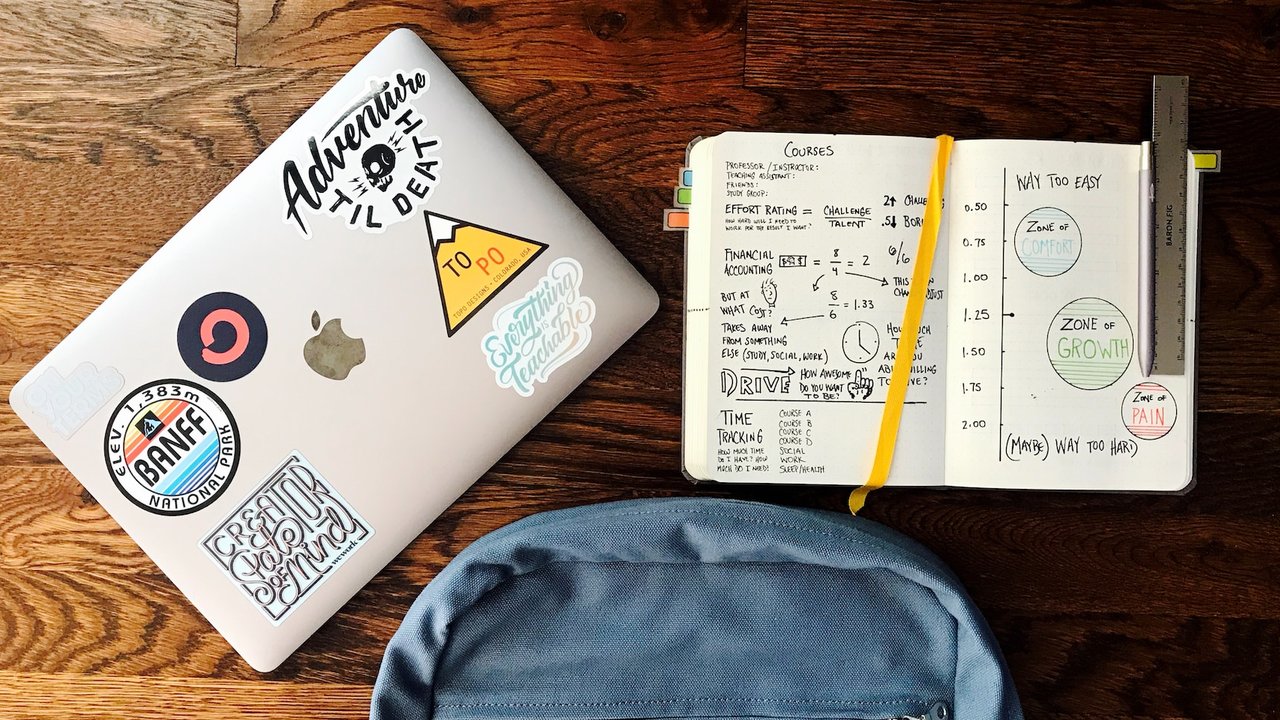 Adventure
'TIL DEATH
TO PO
TOPO DESIGNS • COLORADO, USA
Everything
is
Teachable
ELEV. 1,383m
BANFF
NATIONAL PARK
CREATOR
State
OF Mind
NETWORK
COURSES
PROFESSOR / INSTRUCTOR:
TEACHING ASSISTANT:
FRIENDS:
STUDY GROUP:
EFFORT RATING = CHALLENGE
TALENT
HOW HARD WILL I NEED TO
WORK FOR THE RESULT I WANT?
2↑
.5↓
FINANCIAL
ACCOUNTING $$$ = 8/4 = 2
6/6
BUT AT
WHAT COST?
8/6 = 1.33
TAKES AWAY
FROM SOMETHING
ELSE (STUDY, SOCIAL, WORK)
HOW MUCH
DRIVE
HOW AWESOME
DO YOU WANT
TO BE?
TIME
TRACKING
HOW MUCH TIME
DO I HAVE? HOW
MUCH DO I NEED?
COURSE A
COURSE B
COURSE C
COURSE D
SOCIAL
WORK
SLEEP/HEALTH
WAY TOO EASY
0.50
0.75
1.00
1.25
1.50
1.75
2.00
ZONE OF
COMFORT
ZONE OF
GROWTH
ZONE OF
PAIN
(MAYBE) WAY TOO HARD
BARON FIG